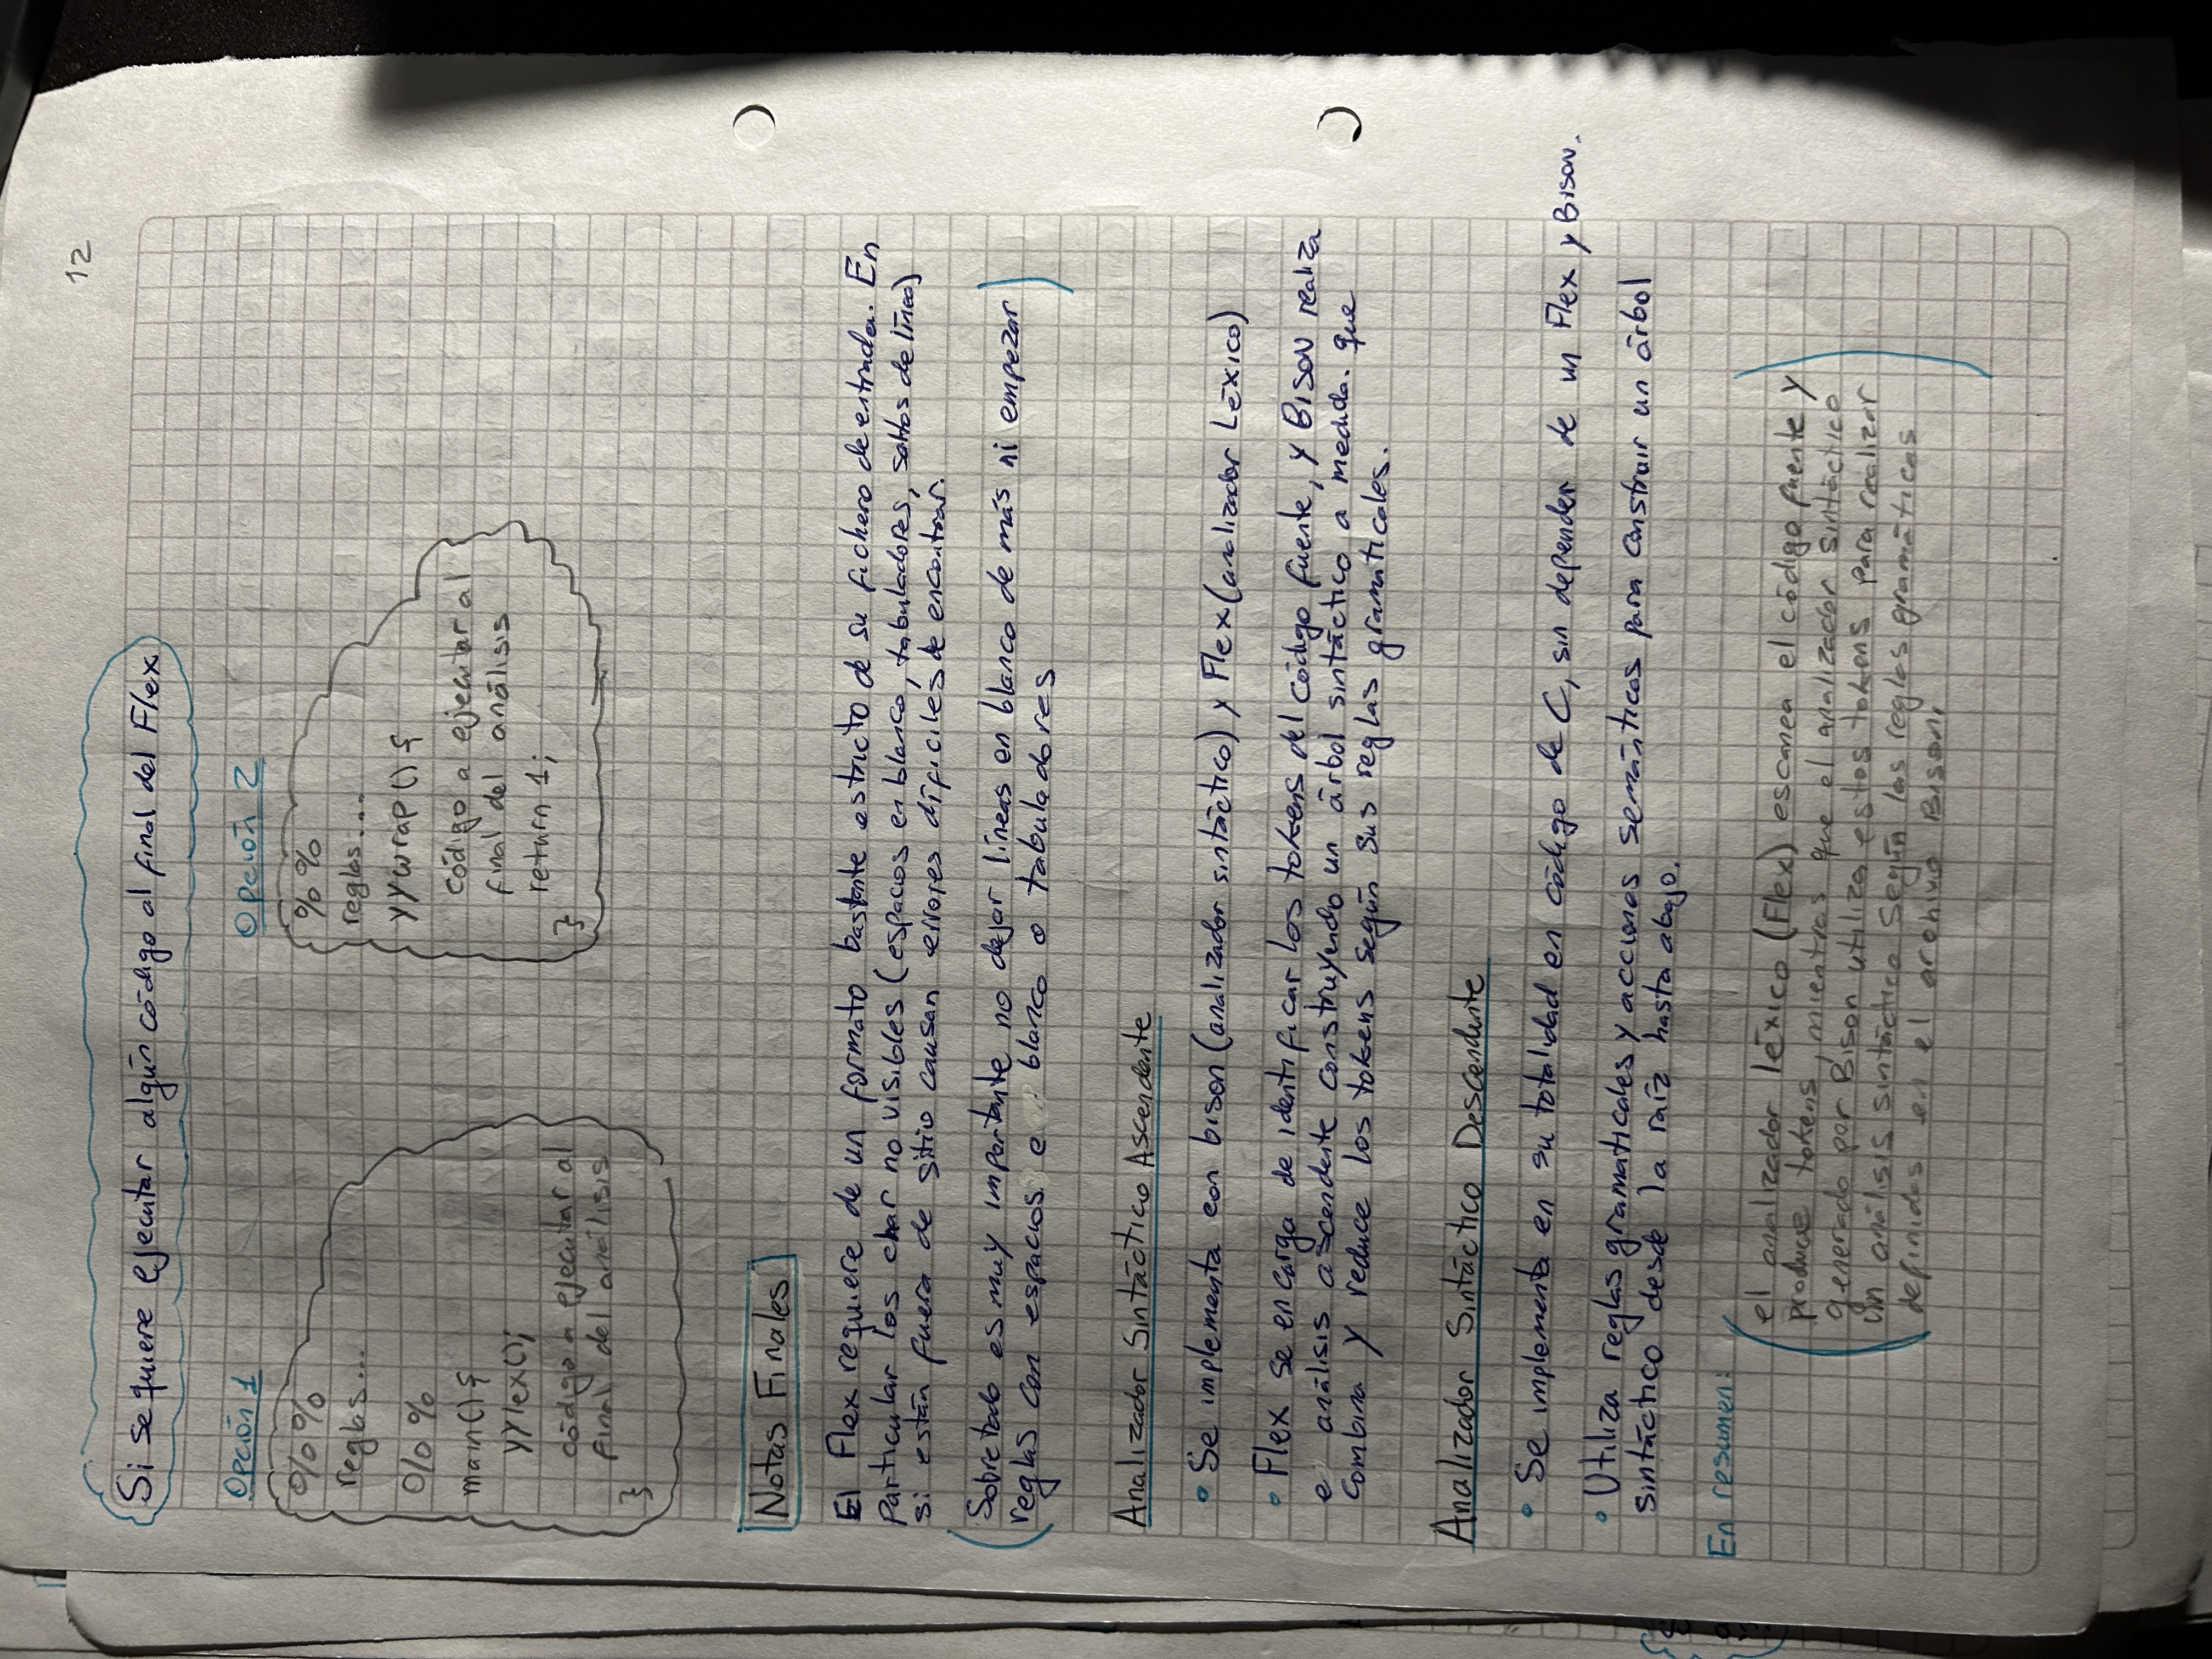 12
Si se quiere ejecutar algún código al final del Flex
Opción 1
%%
reglas...
%%
main(){
yylex();
código a ejecutar al
final del análisis
}
Opción 2
%%
reglas...
yywrap(){
código a ejecutar al
final del análisis
return 1;
}
Notas Finales
El Flex requiere de un formato bastante estricto de su fichero de entrada. En
particular los char no visibles (espacios en blanco, tabuladores, saltos de línea)
si están fuera de sitio causan errores difíciles de encontrar.
Sobretodo es muy importante no dejar líneas en blanco de más ni empezar
reglas con espacios e blanco o tabuladores
Analizador Sintáctico Ascendente
• Se implementa con bison (analizador sintáctico) y Flex (analizador Léxico)
• Flex se encarga de identificar los tokens del código fuente, y BISON realiza
e análisis ascendente construyendo un árbol sintáctico a medida que
combina y reduce los tokens según sus reglas gramaticales.
Analizador Sintáctico Descendente
• Se implementa en su totalidad en código de C, sin depender de un Flex y Bison.
• Utiliza reglas gramaticales y acciones semánticas para construir un árbol
sintáctico desde la raíz hasta abajo.
En resumen:
el analizador léxico (Flex) escanea el código fuente y
produce tokens, mientras que el analizador sintáctico
generado por Bison utiliza estos tokens para realizar
un análisis sintáctico según las reglas gramáticas
definidas en el archivo Bison.